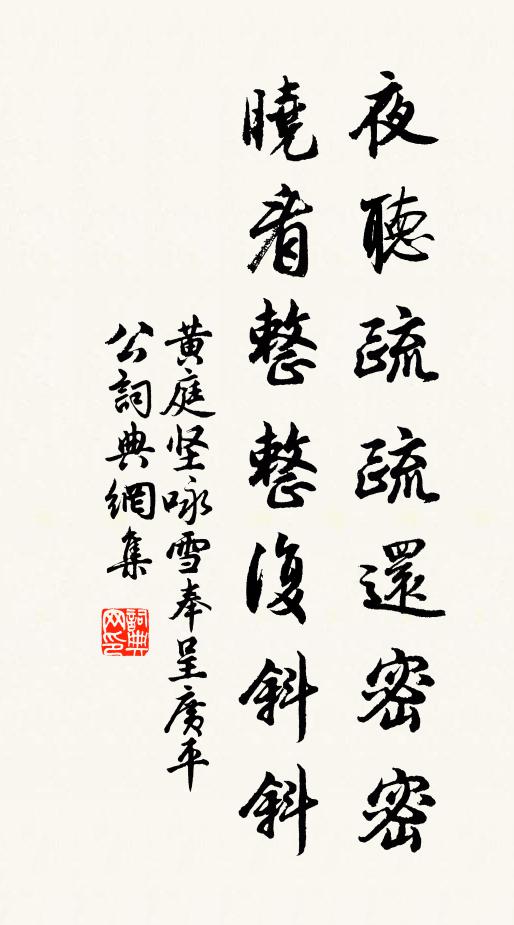 夜聽疏疏還密密
曉看整整復斜斜
黄庭坚咏雪奉呈廣平
公詞典網集
詞典
网印